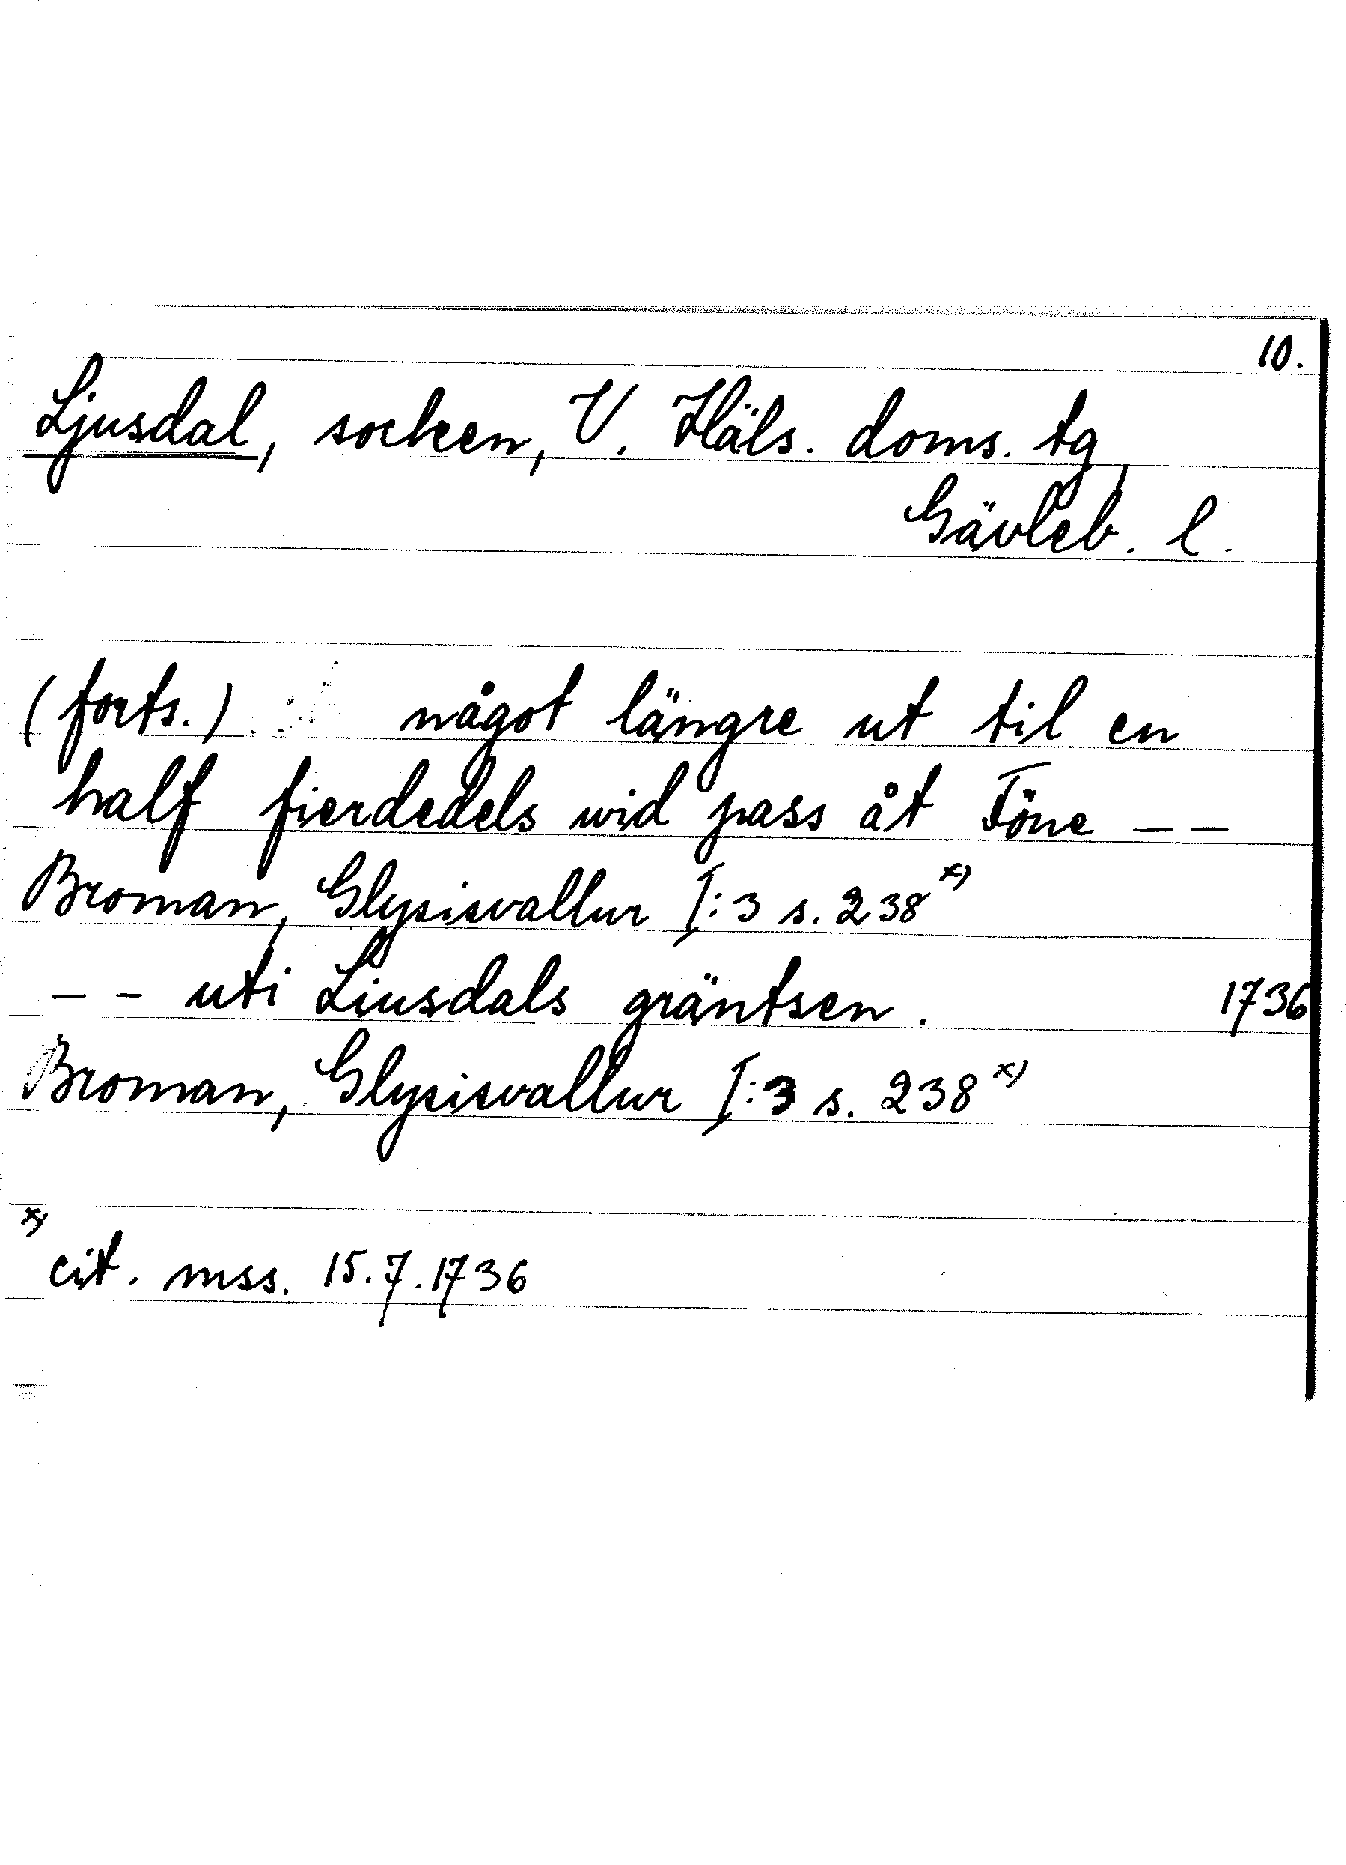 10.
Ljusdal, socken, V. Häls. doms. tg,
Gävleb. l.
(forts.) något längre ut til en
half fierdedels wid pass åt Föne – –
Broman, Glysisvallur I:3 s. 238 x)
– – uti Liusdals gräntsen. 1736
Broman, Glysisvallur I:3 s. 238 x)
x) cit. mss. 15.7.1736